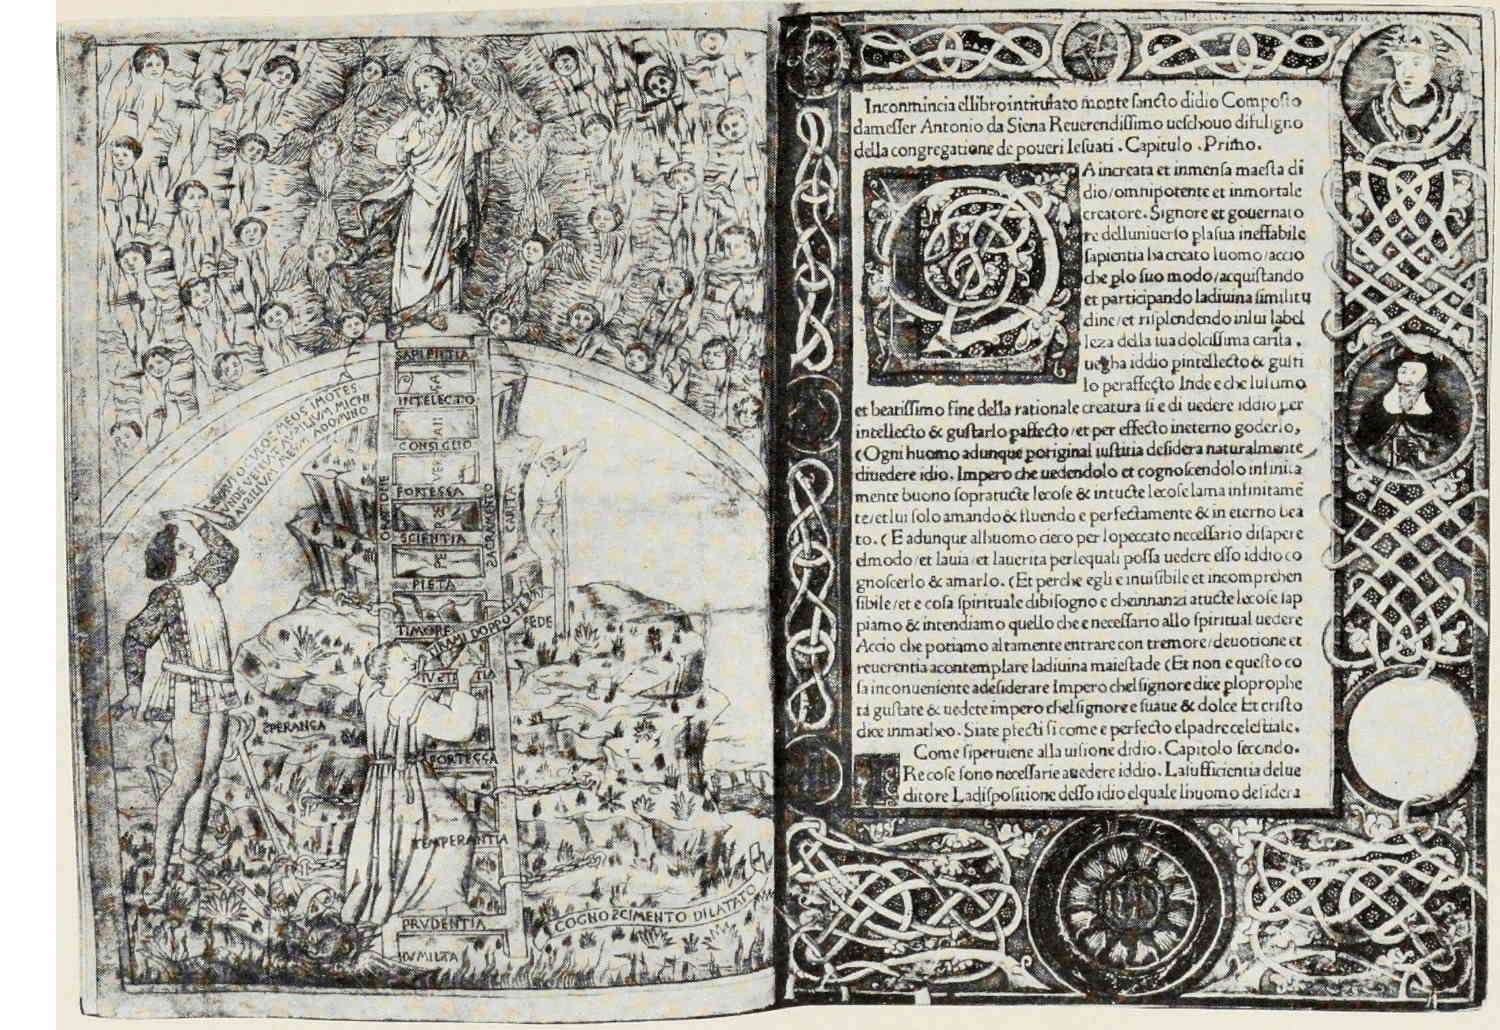 SAPIENTIA
INTELECTO
CONSIGLIO
FORTESSA
SCIENTIA
PIETA
TIMORE
ORATIONE
SACRAMENTO
CARITA
FEDE
TIRAMI DOPPO TE
SPERANCA
IVSTI TIA
FORTESSA
TEMPERANTIA
PRVDENTIA
HVMILTA
COGNOSCIMENTO DILATATO
OCVLOS MEOS IMOTES
VNDE VENIAT AVSILIVM MICHI
AVSILIVM MEVM ADOMINO
Inconmincia ellibro intitulato monte sancto didio Composto
damesser Antonio da Siena Reuerendissimo ueschouo difuligno
della congregatione de poueri Iesuati . Capitulo . Primo.
A increata et inmensa maesta di
dio/omnipotente et inmortale
creatore. Signore et gouernato
re delluniuerso plasua ineffabile
sapientia ha creato luomo/accio
che plo suo modo/acquistando
et participando ladiuina similitu
dine/et risplendendo inlui label
leza della sua dolcissima carita.
uegha iddio pintellecto & gusti
lo peraffecto Inde e che lulumo
et beatissimo fine della rationale creatura si e di uedere iddio per
intellecto & gustarlo paffecto/et per effecto ineterno goderlo,
(Ogni huomo adunque poriginal iustitia desidera naturalmente
diuedere idio. Impero che uedendolo et cognoscendolo infinita
mente buono sopratucte lecose & intucte lecose lama infinitame
te/et lui solo amando & fluendo e perfectamente & in eterno bea
to. (E adunque alhuomo cieco per lopeccato necessario disapere
elmodo/et lauia/et lauerita perlequali possa uedere esso iddio co
gnoscerlo & amarlo. (Et perche egli e inuisibile et incomprehen
sibile/et e cosa spirituale dibisogno e cheinnanzi atucte lecose sap
piamo & intendiamo quello che e necessario allo spiritual uedere
Accio che potiamo altamente entrare con tremore/deuotione et
reuerentia acontemplare ladiuina maiestade (Et non e questo co
sa inconueniente adesiderare Impero chel signore dice plo prophe
ta gustate & uedete impero chel signore e suaue & dolce Et cristo
dice in matheo. Siate pfecti si come e perfecto el padre celestiale.
Come siperuiene alla uisione didio. Capitolo secondo.
Re cose sono necessarie auedere iddio. La sufficientia delue
ditore La dispositione desso idio elquale lhuomo desidera